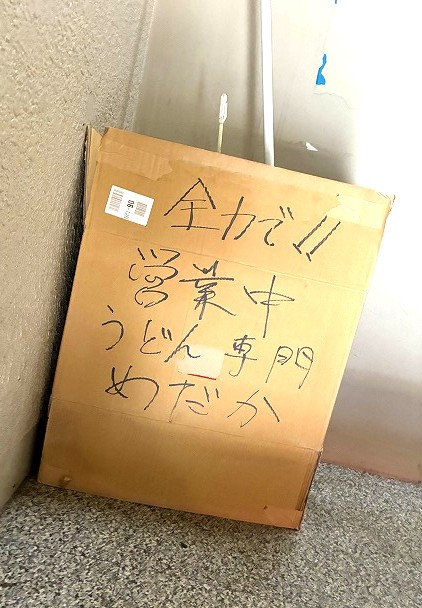 全力で!!
営業中
うどん専門
めだか